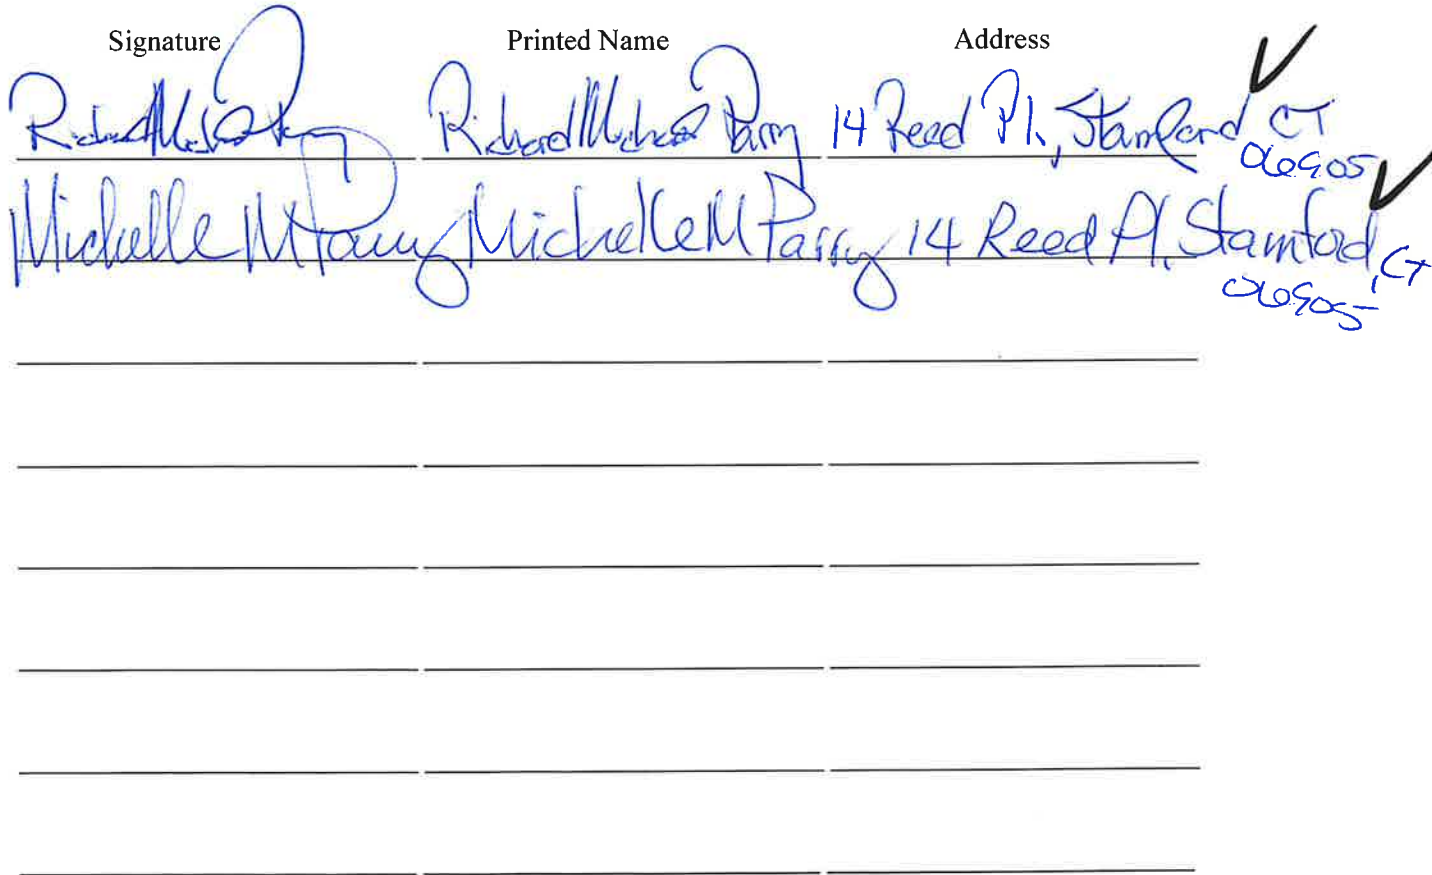 Signature Printed Name Address
Richard Michael Parry Richard Michael Parry 14 Reed Pl., Stamford CT
06905
Michelle M Parry Michelle M Parry 14 Reed Pl, Stamford, CT
06905